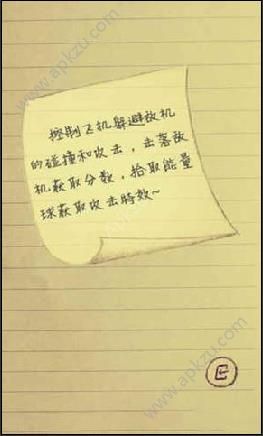 www.apkzu.com
控制飞机躲避敌机
的碰撞和攻击，击落敌
机获取分数，拾取能量
球获取攻击特效~
www.apkzu.com